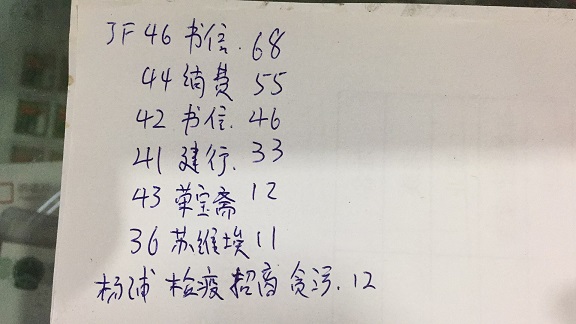 JF 46 书信. 68
44 缩费 55
42 书信. 46
41 建行. 33
43 荣宝斋 12
36 苏维埃 11
杨浦 检疫 招商 贪污. 12